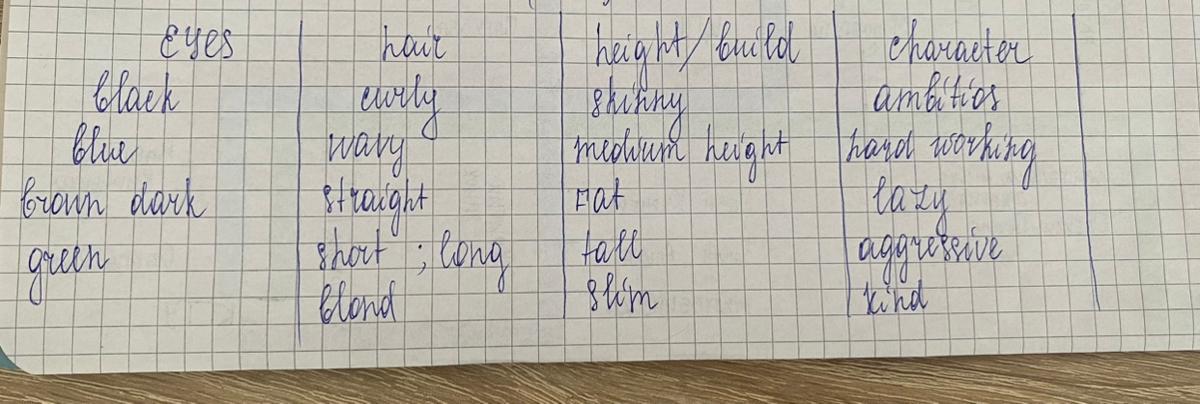 eyes hair height/build character
black curly skinny ambitios
blue wavy medium height hard working
brown dark straight Fat lazy
green short ; long tall aggressive
blond slim kind